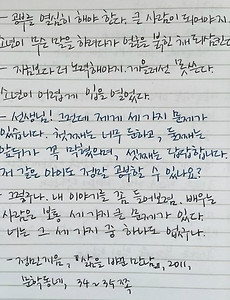 - 공부를 열심히 해야 한다. 큰 사람이 되어야지.
소년이 무슨 말을 하려다가 얼굴을 붉힌 채
- 지금보다 더 노력해야지. 게을러선 못쓴다.
소년이 어렵게 입을 열었다.
- 선생님! 그런데 제게 세 가지 문제가
있습니다. 첫째는 너무 둔하고, 둘째는
앞뒤가 꼭 막혔으며, 셋째는 답답합니다.
저 같은 아이도 정말 공부할 수 있나요?
- 그렇구나. 내 이야기를 좀 들어보렴. 배우는
사람은 보통 세 가지 큰 문제가 있다.
너는 그 세 가지 중 하나도 없구나.
- 정민 지음, 삶을 바꾼 만남, 2011,
문학동네, 34~35쪽